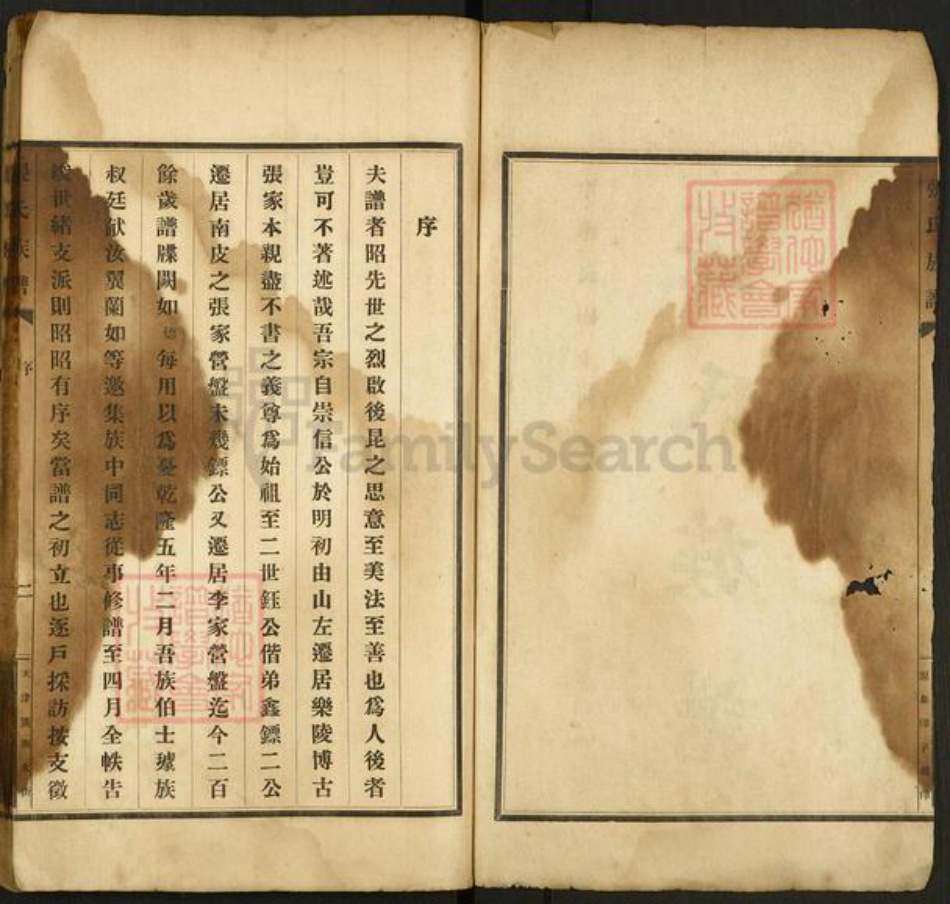 序
夫譜者昭先世之烈啟後昆之思意至美法至善也爲人後者
豈可不著述哉吾宗自崇信公於明初由山左遷居樂陵博古
張家本親盡不書之義尊爲始祖至二世鈺公偕弟鑫鏢二公
遷居南皮之張家營盤未幾鏢公又遷居李家營盤迄今二百
餘歲譜牒闕如每用以爲乾隆五年二月吾族伯士璩族
叔廷猷汝翼蘭如等邀集族中同志從事修譜至四月全帙告
世緒支派則昭昭有序矣當譜之初立也逐戶採訪按支徵
氏族譜
序
二
氏族譜
FamilySearch